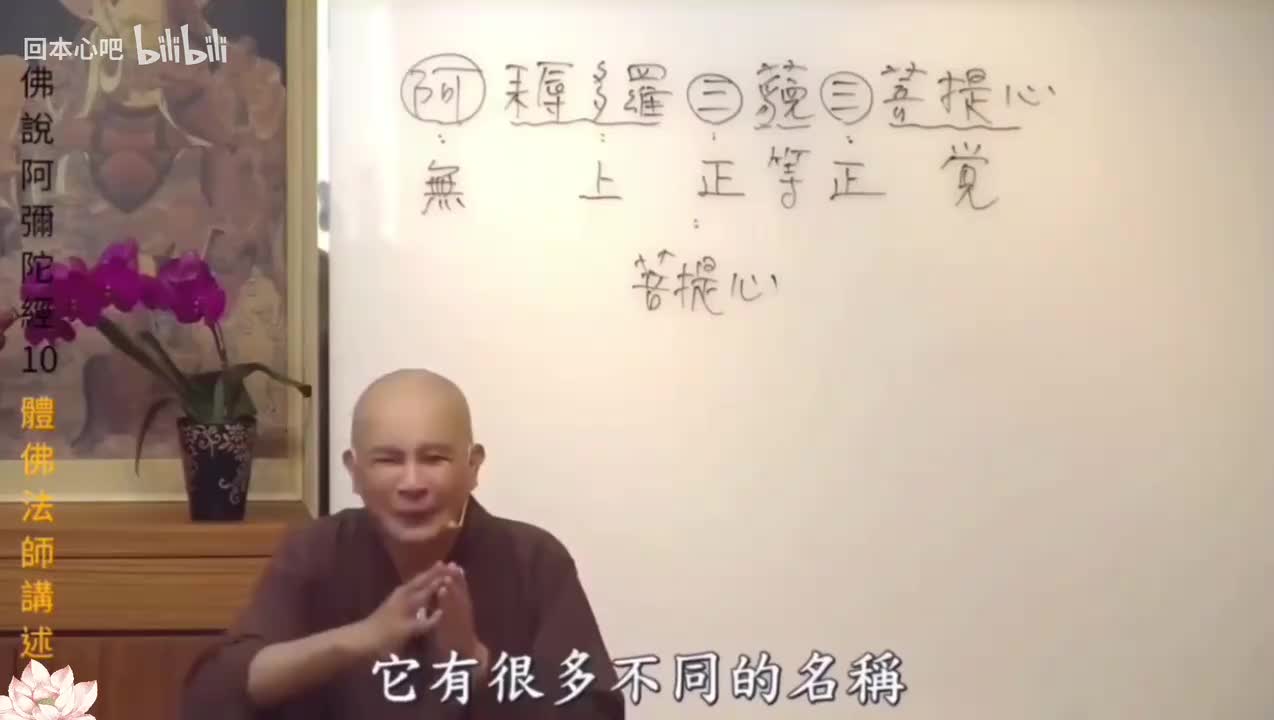 回本心吧 bilibili
佛說阿彌陀經10 體佛法師講述
阿耨多羅三藐三菩提心
無上正等正覚
菩提心
它有很多不同的名稱